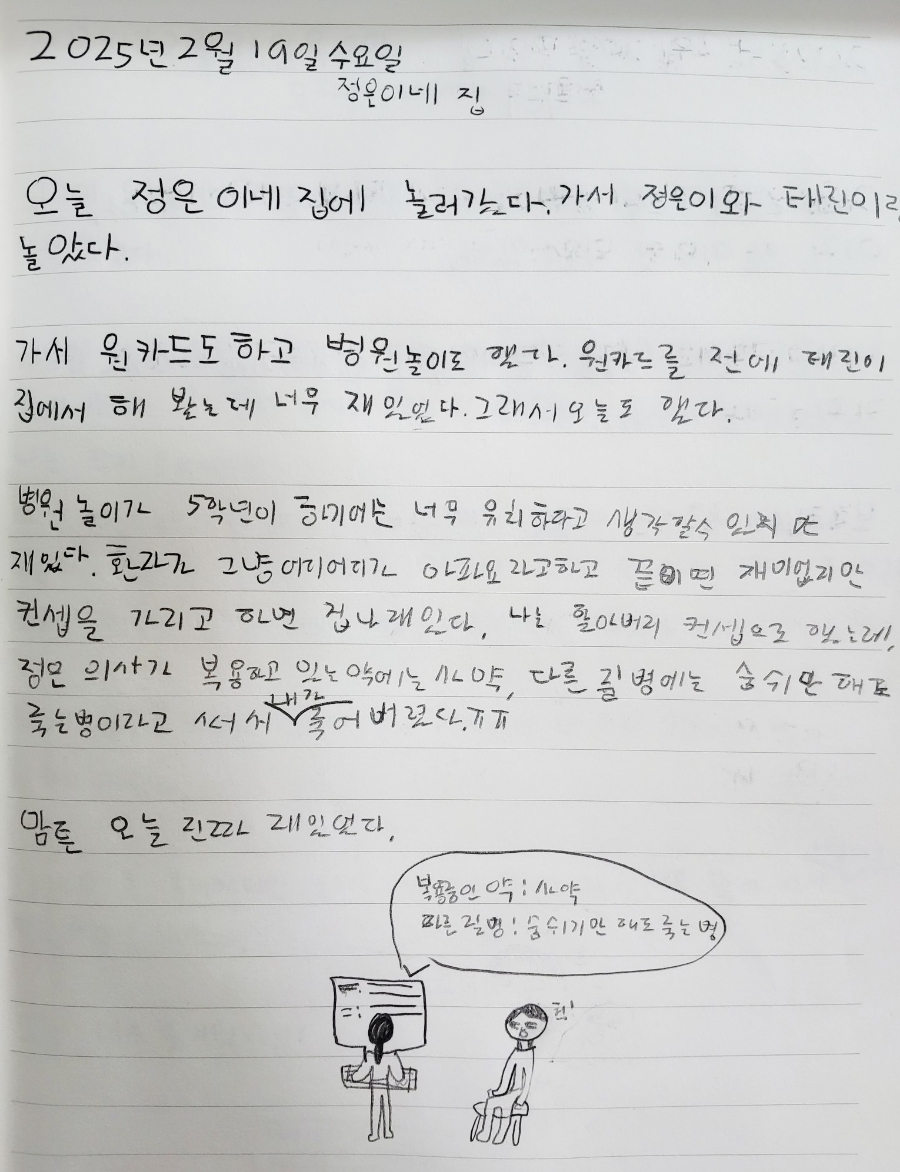 2025년 2월 19일 수요일
정은이네 집
오늘 정은이네 집에 놀러갔다. 가서 정은이와 태린이랑
놀았다.
가서 원카드도 하고 병원놀이도 했다. 원카드를 전에 태린이
집에서 해 봤는데 너무 재밌었다. 그래서 오늘도 했다.
병원놀이가 5학년이 하기에는 너무 유치하다고 생각할수 있지만
재밌다. 환자가 그냥 어디어디가 아파요라고하고 끝이면 재미없지만
컨셉을 가리고 하면 겁나 재밌다. 나는 할아버지 컨셉으로 했는데,
정은 의사가 복용하고 있는약에는 사약, 다른 질병에는 숨쉬만 해도
죽는병이라고 써서 내가 죽어버렸다.ㅠㅠ
암튼 오늘 진짜 재밌었다.
복용중인 약 : 사약
다른 질병 : 숨쉬기만 해도 죽는 병
헉!